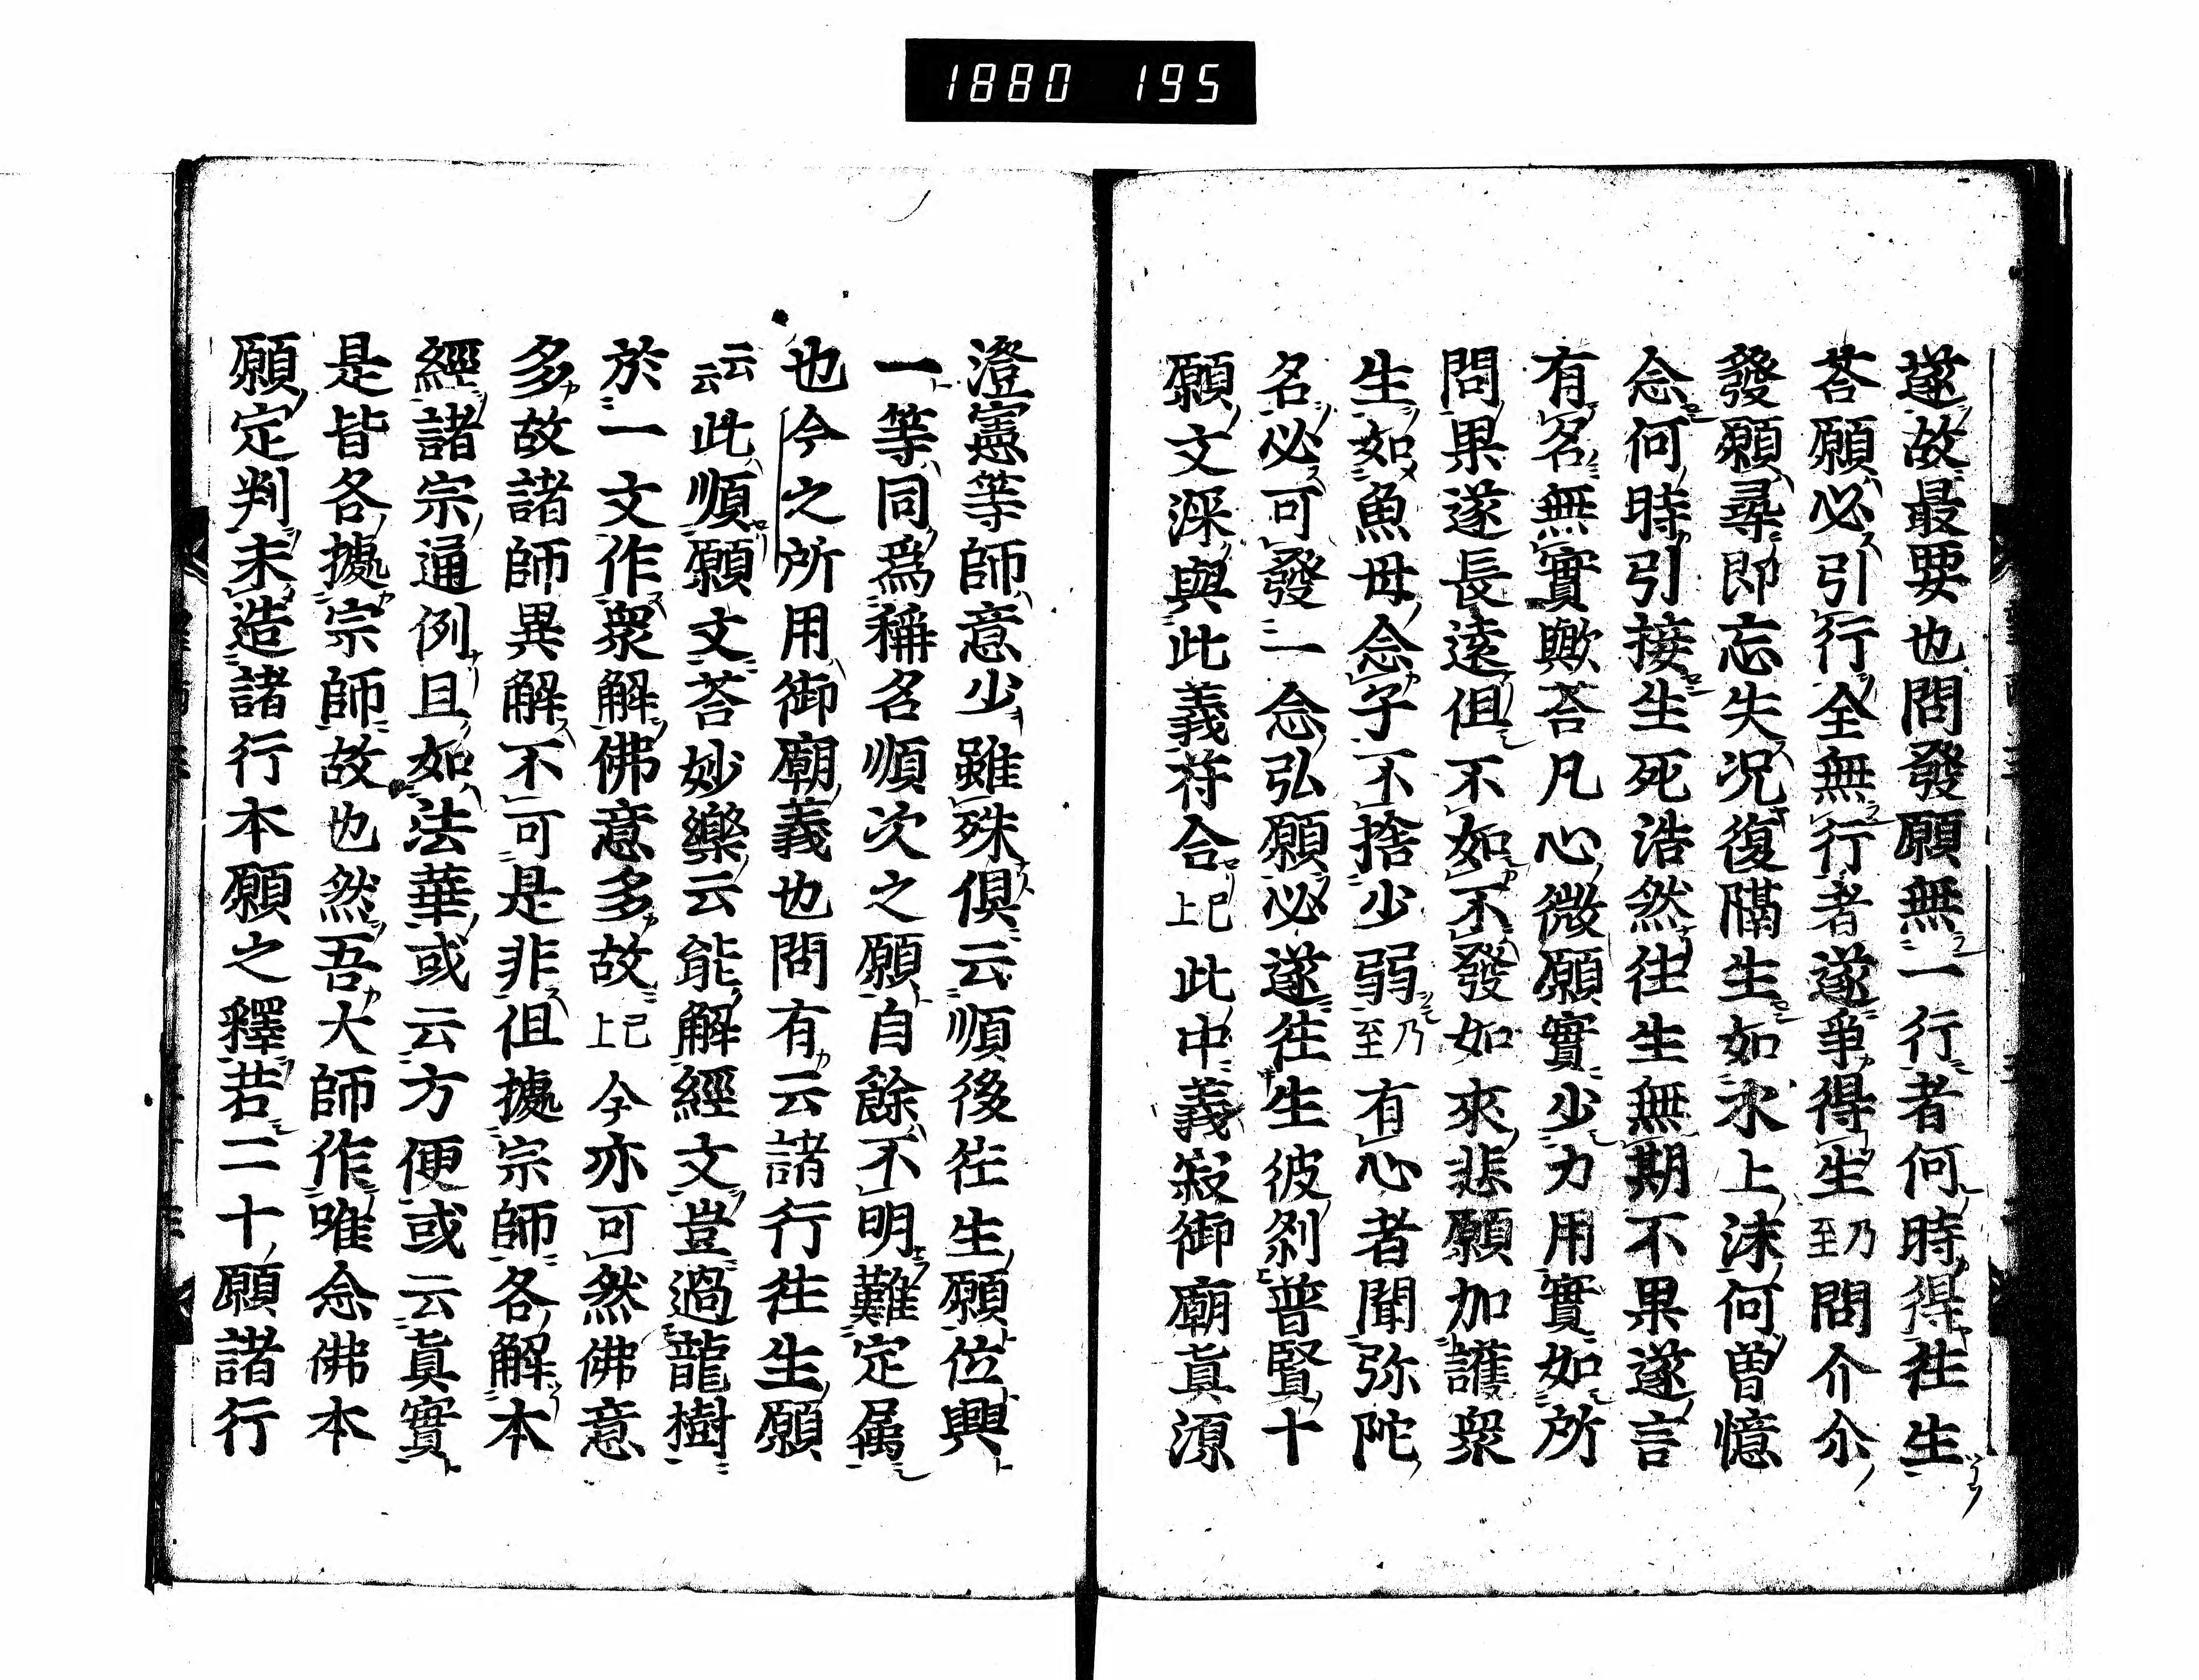 1880 195
遂故最要也問發願無一行者何時得往生
荅願必引行全無行者遂爭得生乃至問介尒
發願尋即忘失况復隔生如氷上沫何曽憶
念何時引接生死浩然往生無期不果遂言
有名無實歟荅凡心微願實少力用實如所
問果遂長遠但不如不發如來悲願加護衆
生如魚母念子不捨少弱乃至有心者聞弥陀
名必可發一念弘願必遂往生彼刹普賢十
願文深與此義符合已上此中義寂御廟眞源
澄憲等師意少雖殊俱云順後往生願位興
一等同爲稱名順次之願自餘不明難定属
也今之所用御廟義也問有云諸行往生願
云云此順願文荅妙樂云能解經文豈過龍樹
於一文作衆解佛意多故已上今亦可然佛意
多故諸師異解不可是非但據宗師各解本
經諸宗通例且如法華或云方便或云眞實
是皆各據宗師故也然吾大師作唯念佛本
願定判未造諸行本願之釋若二十願諸行